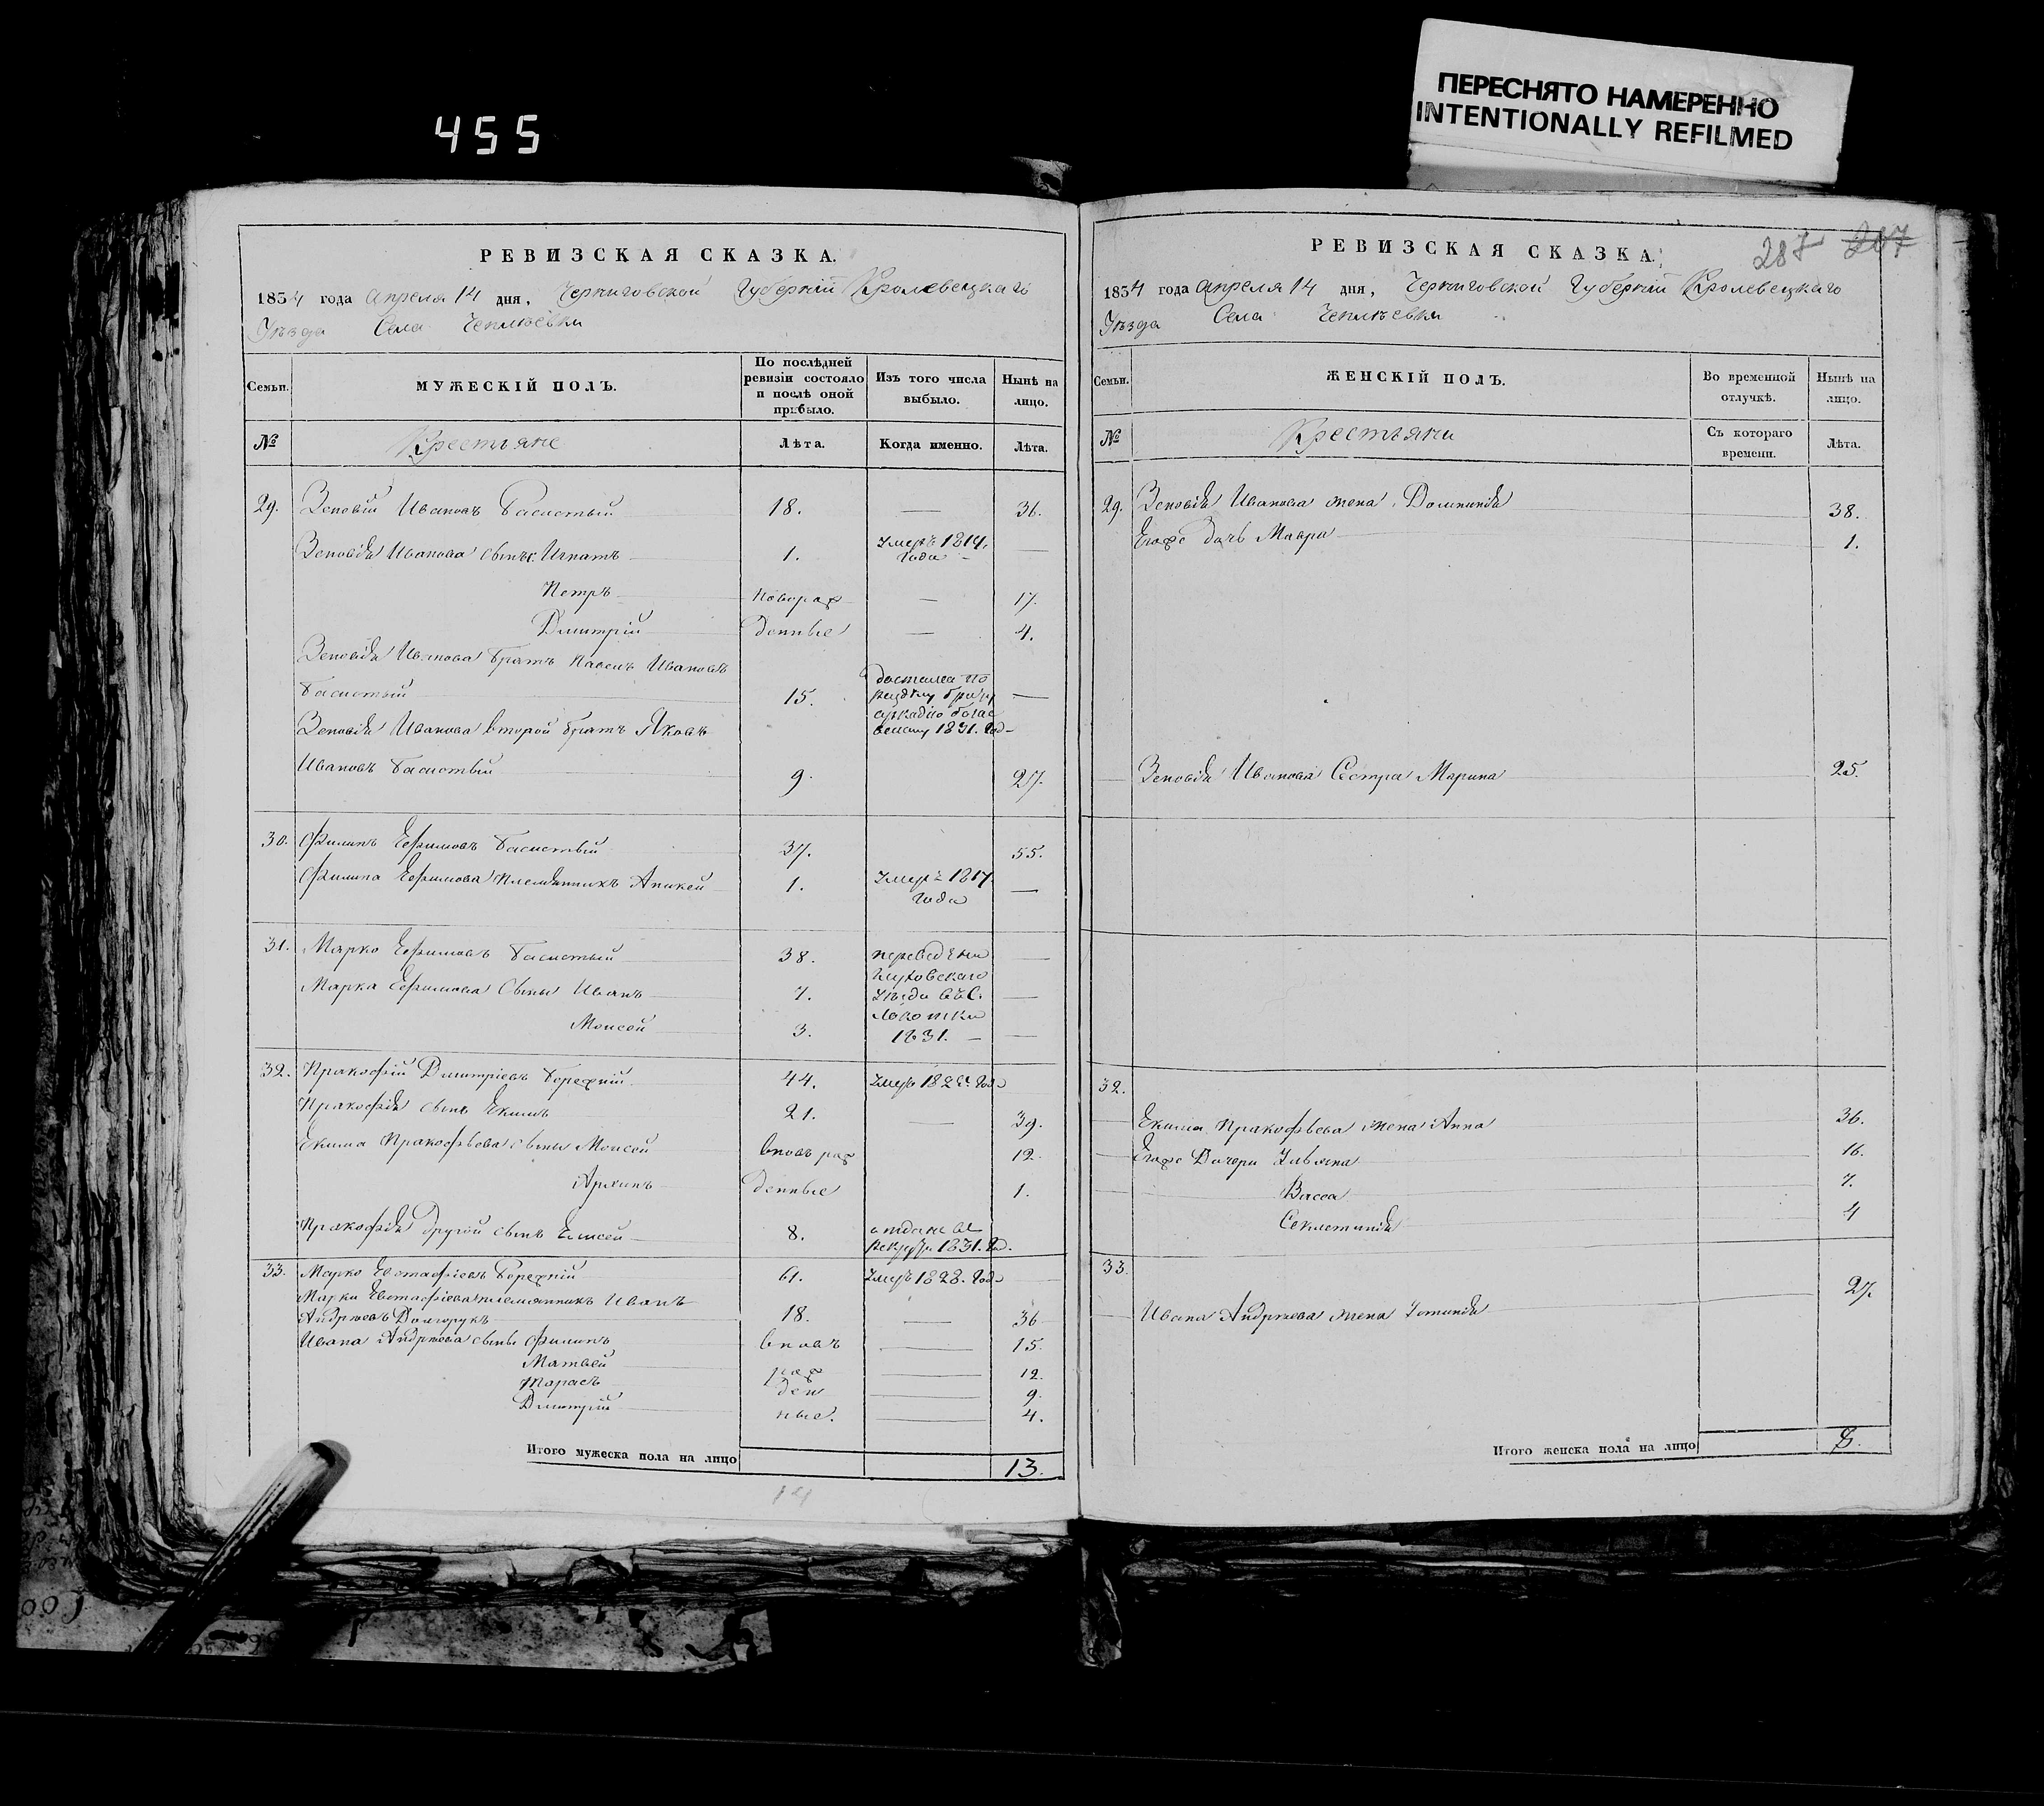 455
ПЕРЕСНЯТО НАМЕРЕННО
INTENTIONALLY REFILMED
РЕВИЗСКАЯ СКАЗКА.
1834 года Апреля 14 дня, Черниговской Губерніи Кролевецкаго
Уѣзда Села Чеплѣевки
Семьи.
МУЖЕСКІЙ ПОЛЪ.
По послѣдней ревизіи состояло и послѣ оной прибыло.
Изъ того числа выбыло.
Нынѣ на лицо.
№ Крестьяне Лѣта. Когда именно. Лѣта.
29. Зеновій Ивановъ Басистый 18. — 36.
Зеновія Иванова сынъ: Игнатъ 1. умеръ 1819. года —
Петръ новорож — 17.
Дмитрій денные — 4.
Зеновія Иванова братъ Павелъ Ивановъ
Басистый 15. —
1831. год
Зеновія Иванова второй братъ Яковъ
Ивановъ Басистый 9. 27.
30. Филипъ Ефимовъ Басистый 37. 55.
Филипа Ефимова племянникъ Аникей 1. умеръ 1817 года —
31. Марко Ефимовъ Басистый 38. переведены —
Глуховскаго
Марка Ефимова сыны Иванъ 7. уѣзда въ С. —
Моисей 3. 1831. —
32. Пракофій Дмитріевъ Бережній 44. умеръ
Пракофія сынъ Екимъ 21. — 39.
Екима Пракофьева сыны Моисей вновь рож 12.
Архипъ денные 1.
Пракофія другой сынъ Елисей 8. отданъ въ рекруты 1831. го.
33. Марко Евстафіевъ Бережній 61. умеръ 1828. года —
Марка Евстафіева племянникъ Иванъ
Андрѣевъ Долгорукъ 18. — 36
Ивана Андрѣева сыны Филипъ вновь — 15.
Матвѣй рож — 12.
Тарасъ ден — 9.
Дмитрій ные. — 4.
Итого мужеска пола на лицо 13.
14
РЕВИЗСКАЯ СКАЗКА.
287 207
1834 года Апреля 14 дня, Черниговской Губерніи Кролевецкаго
Уѣзда Села Чеплѣевки
Семьи.
ЖЕНСКІЙ ПОЛЪ.
Во временной отлучкѣ.
Нынѣ на лицо.
№ Крестьяни Съ котораго времени. Лѣта.
29. Зеновія Иванова жена Домникія 38.
Егоже дочь Мавра 1.
Зеновія Иванова Сестра Марина 25.
32.
Екима Пракофьева жена Анна 36.
Егоже Дочери Ульяна 16.
Васса 7.
Секлетинія 4
33.
Ивана Андрѣева жена Устинія 27.
Итого женска пола на лицо 8.